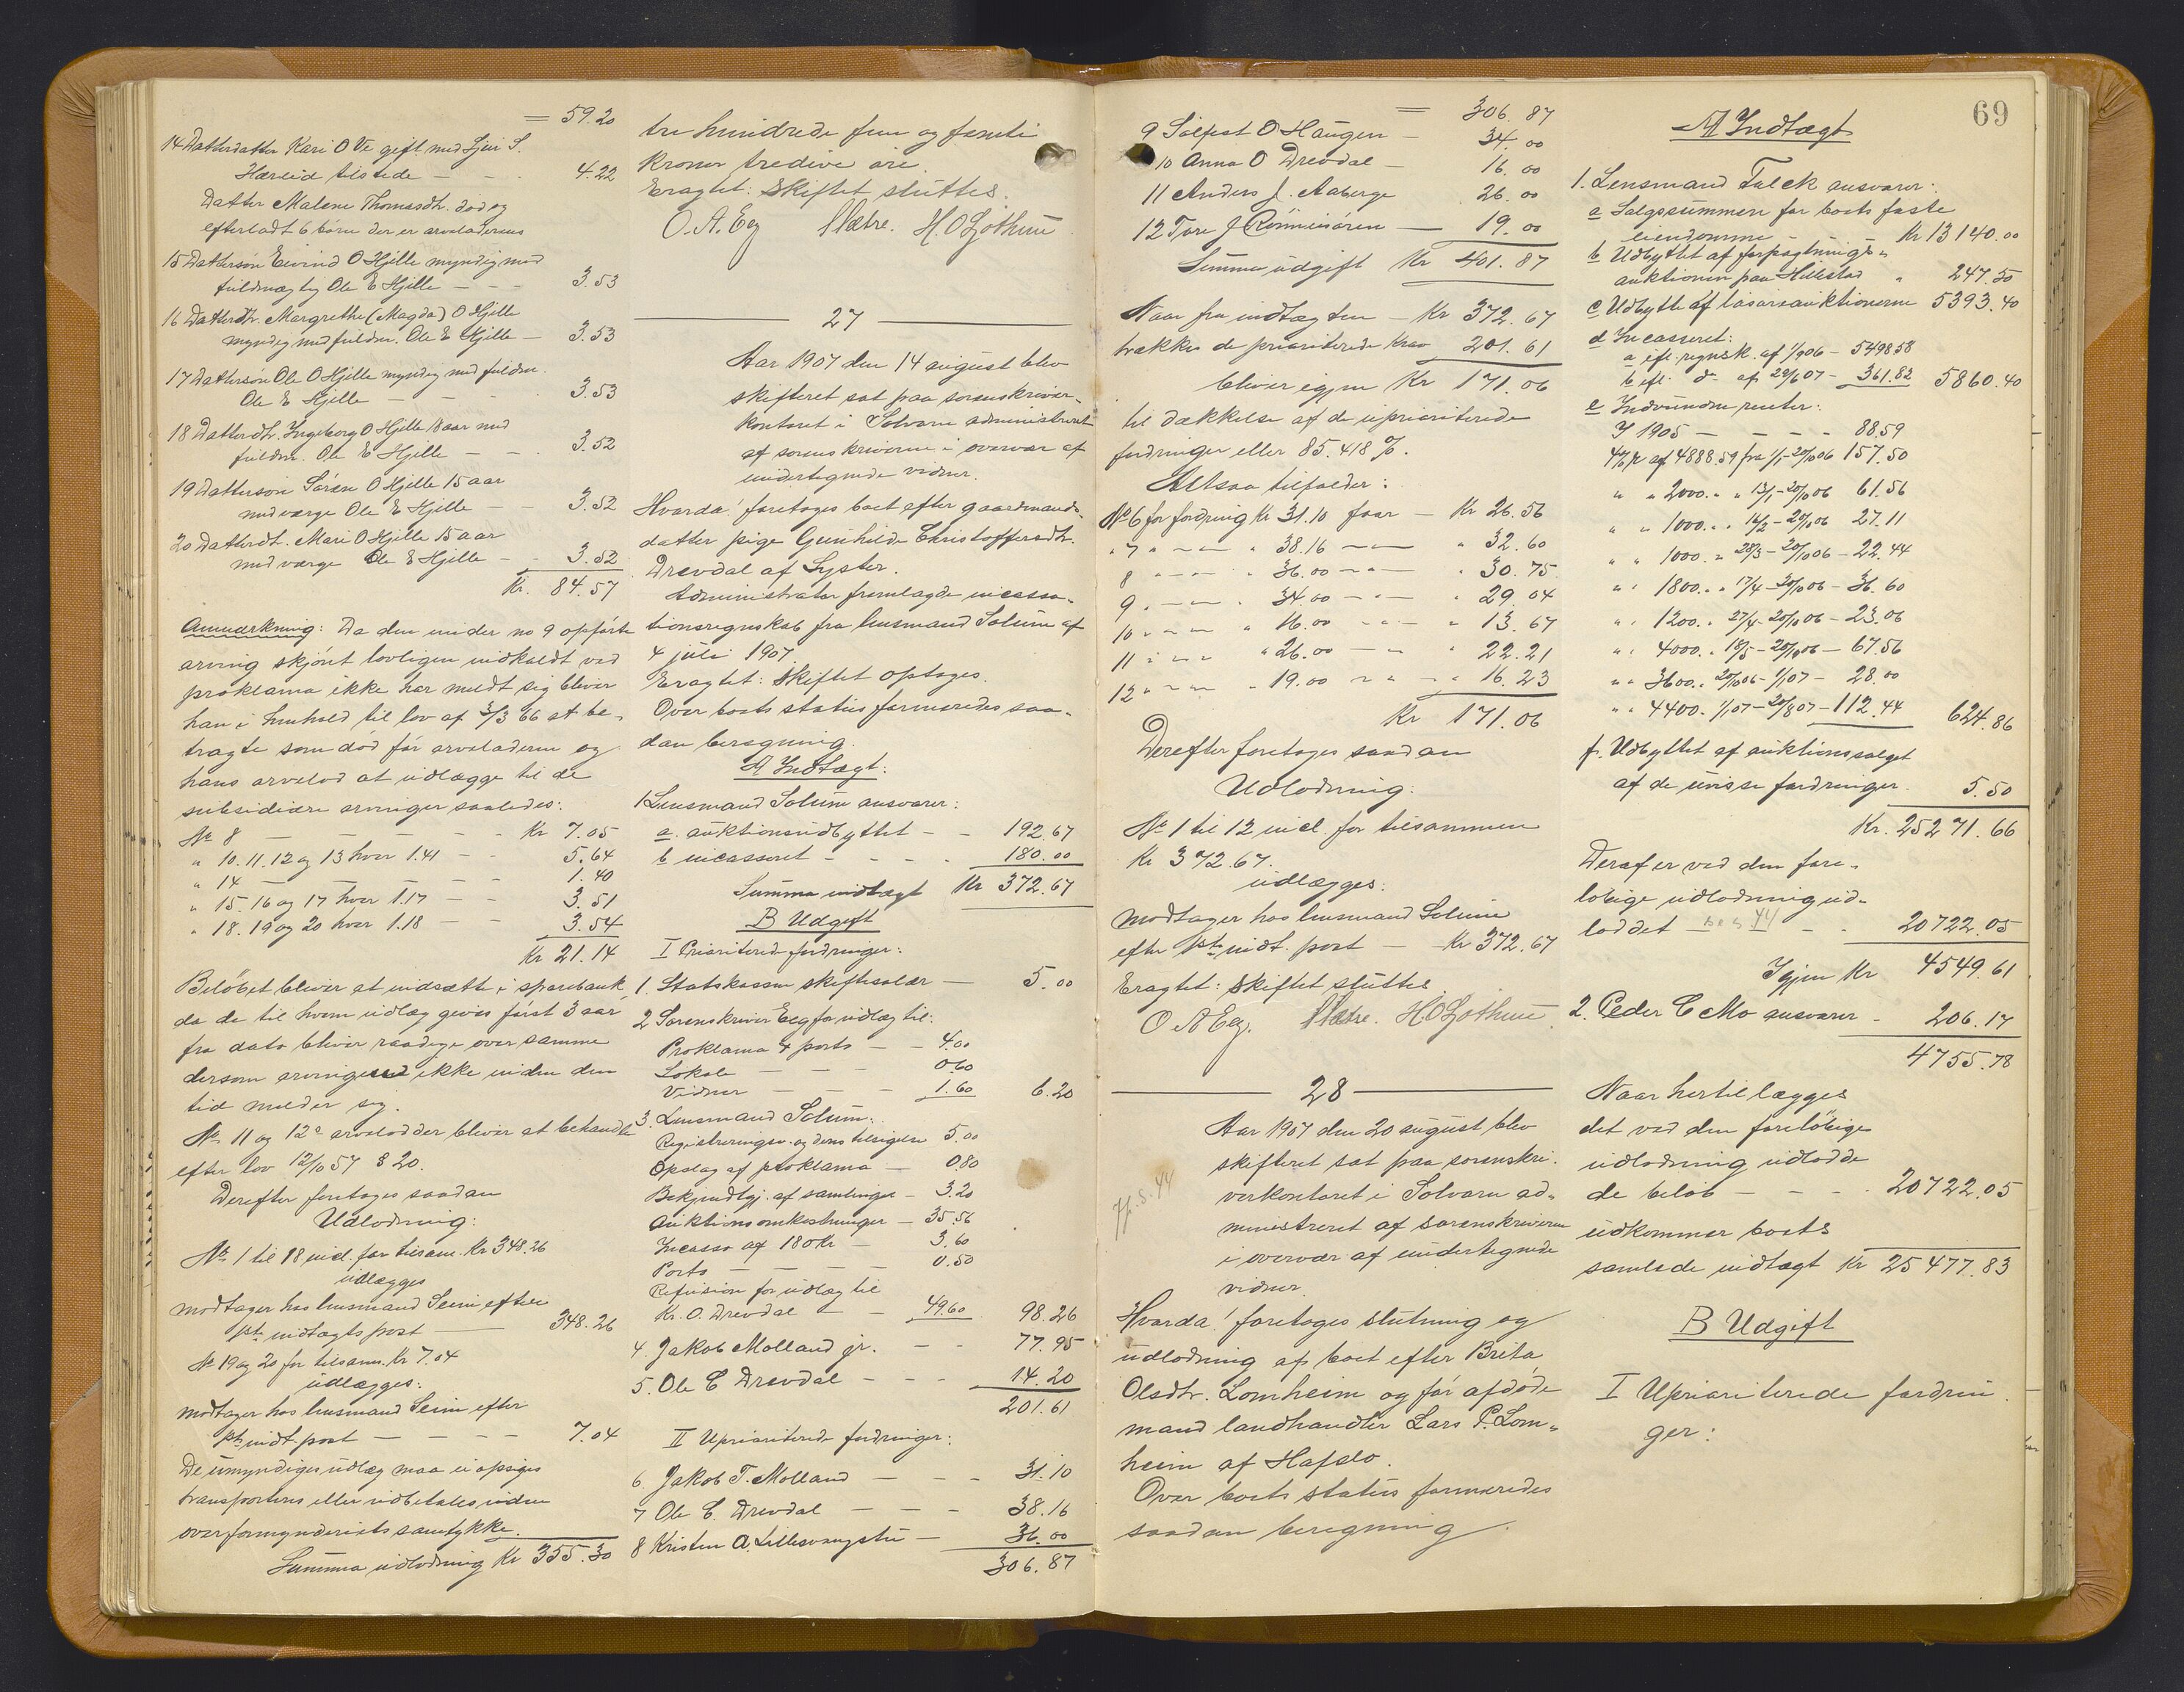 = 59.20
14 Datterdatter Kari O Ve gift med Sjur S.
Hæreid tilstede — 4.22
Datter Malene Thomasdtr. død og
efterladt 6 börn der er arveladerens
15 Dattersön Eivind O Hjelle myndig med
fuldmægtig Ole E Hjelle — — 3.53
16 Datterdtr. Margrethe (Magda) O Hjelle
myndig med fuldm. Ole E Hjelle — 3.53
17 Dattersön Ole O Hjelle myndig med fuldm.
Ole E Hjelle — — 3.53
18 Datterdtr. Ingeborg O Hjelle 18 aar med
fuldm. Ole E Hjelle — — 3.52
19 Dattersön Sören O Hjelle 15 aar
med værge Ole E Hjelle — — 3.52
20 Datterdtr. Mari O Hjelle 15 aar
med værge Ole E Hjelle — 3.52
Kr. 84.57
Anmærkning: Da den under no 9 opförte
arving skjönt lovligen indkaldt ved
proklama ikke har meldt sig bliver
han i henhold til lov af 3/3 66 at be-
tragte som död för arveladeren og
hans arvelod at udlægge til de
subsidiære arvinger saaledes:
No 8 — — — — Kr 7.05
" 10. 11. 12 og 13 hver 1.41 — — 5.64
" 14 — — — 1.40
" 15. 16 og 17 hver 1.17 — — 3.51
" 18. 19 og 20 hver 1.18 — — 3.54
Kr 21.14
Belöbet bliver at indsætte i sparebank,
da de til hvem udlæg gives först 3 aar
fra dato bliver raadige over samme
dersom arvingen ikke inden den
tid melder sig.
No 11 og 12s arvelodder bliver at behandle
efter lov 12/10 57 § 20.
Derefter foretages saadan
Udlodning:
No 1 til 18 incl. for tilsam. Kr 348.26
udlægges
modtager hos lensmand Seim efter
1ste indtægtspost — 348.26
No 19 og 20 for tilsam. Kr 7.04
udlægges:
modtager hos lensmand Seim efter
1ste indt. post — — — — 7.04
De umyndiges udlæg maa ei opsiges
transporteres eller udbetales uden
overformynderiets samtykke.
Summa udlodning Kr 355.30
tre hundrede fem og femti
kroner tredive öre.
Eragtet: Skiftet sluttes.
O. A. Eeg Sætre. H. O Lothun
27
Aar 1907 den 14 august blev
skifteret sat paa sorenskriver-
kontoret i Solvorn administreret
af sorenskriveren i overvær af
undertegnede vidner.
Hvorda! foretoges boet efter gaardmands-
datter pige Gunhilde Christoffersdtr.
Drevdal af Lyster.
Administrator fremlagde incassa-
tionsregnskab fra lensmand Solum af
4 juli 1907
Eragtet: Skiftet optages.
Over boets status formeredes saa-
dan beregning.
A Indtægt:
1 Lensmand Solum ansvarer:
a. auktionsudbyttet — — 192.67
b incasseret — — — — 180.00
Summa indtægt Kr 372.67
B Udgift
I Prioriterede fordringer:
1. Statskassen skiftesalær — 5.00
2 Sorenskriver Eeg for udlæg til:
Proklama & porto — — 4.00
Lokale — — — 0.60
Vidner — — — 1.60 6.20
3. Lensmand Solum:
Registreringen og dens tilsigelse 5.00
Opslag af proklama — 0.80
Bekjendtgj. af samlinger — 3.20
Auktionsomkostninger — 35.56
Incasso af 180 Kr — 3.60
Porto — — — — 0.50
Refusion for udlæg til
Kr. O. Drevdal — — 49.60 98.26
4. Jakob Molland jr. — — 77.95
5. Ole C Drevdal — — — 14.20
201.61
II Uprioriterede fordringer:
6 Jakob T. Molland — — — 31.10
7 Ole C. Drevdal — — — 38.16
8 Kristen A. Lillesvangstu — 36.00
306.87
= 306.87
9 Sølfest O Haugen — 34.00
10 Anna O Drevdal — 16.00
11 Anders J. Aaberge 26.00
12 Tore J Rönneisören — 19.00
Summa udgift Kr 401.87
Naar fra indtægten — Kr 372.67
trækkes de prioriterede krav 201.61
bliver igjen Kr 171.06
til dækkelse af de uprioriterede
fordringer eller 85.418 %.
Altsaa tilfalder:
No 6 for fordring Kr 31.10 faar — Kr 26.56
" 7 " — — " 38.16 — — " 32.60
8 " — — " 36.00 — — " 30.75
9 " — — " 34.00 — — " 29.04
10 " — — " 16.00 — — " 13.67
11 " — — " 26.00 — — " 22.21
12 " — — " 19.00 — — " 16.23
Kr 171.06
Derefter foretages saadan
Udlodning:
No 1 til 12 incl. for tilsammen
Kr 372.67.
udlægges:
modtager hos lensmand Solum
efter 1ste indt. post — Kr 372.67
Eragtet: Skiftet sluttes
O A Eeg. Sætre. H. O Lothun
28
Aar 1907 den 20 august blev
skifteret sat paa sorenskri-
verkontoret i Solvorn ad-
ministreret af sorenskriveren
i overvær af undertegnede
vidner.
Hvorda! foretoges slutning og
udlodning af boet efter Brita
Olsdtr. Lomheim og för afdöde
mand landhandler Lars P. Lom-
heim af Hafslo.
Over boets status formeredes
saadan beregning.
69
A Indtægt
1. Lensmand Falck ansvarer:
a Salgssummen for boets faste
eiendomme — Kr 13140.00
b Udbyttet af forpagtnings-
auktionen paa Hillestad " 247.50
c Udbytte af lösöreauktionerne 5393.40
d Incasseret:
a efl. regnsk. af 1/9 06 — 5498.58
b efl. do af 29/6 07 — 361.82 5860.40
e Indvundne renter:
I 1905 — — — — 88.59
4 % p. af 4888.59 fra 1/1-20/10 06 157.50
" " 2000. " " 13/1-20/10 06 61.56
" " 1000. " " 14/2-20/10 06 27.11
" " 1000. " 28/3-20/10 06 — 22.44
" " 1800. " " 17/4-20/10 06 — 36.60
" " 1200. " 27/4-20/10 06 — 23.06
" " 4000. " 18/5-20/10 06 — 67.56
" " 3600. " 20/10 06-1/1 07 — 28.00
" " 4400. 1/1 07-20/8 07 — 112.44 624.86
f. Udbyttet af auktionssalget
af de uvisse fordringer. 5.50
Kr. 25271.66
Deraf er ved den fore-
löbige udlodning ud-
loddet — — 20722.05
Igjen Kr 4549.61
2. Peder C Mo ansvarer — 206.17
4755.78
Naar hertil lægges
det ved den forelöbige
udlodning udlodde-
de belöb — — — 20722.05
udkommer boets
samlede indtægt Kr 25477.83
B Udgift
I Uprioriterede fordrin-
ger: